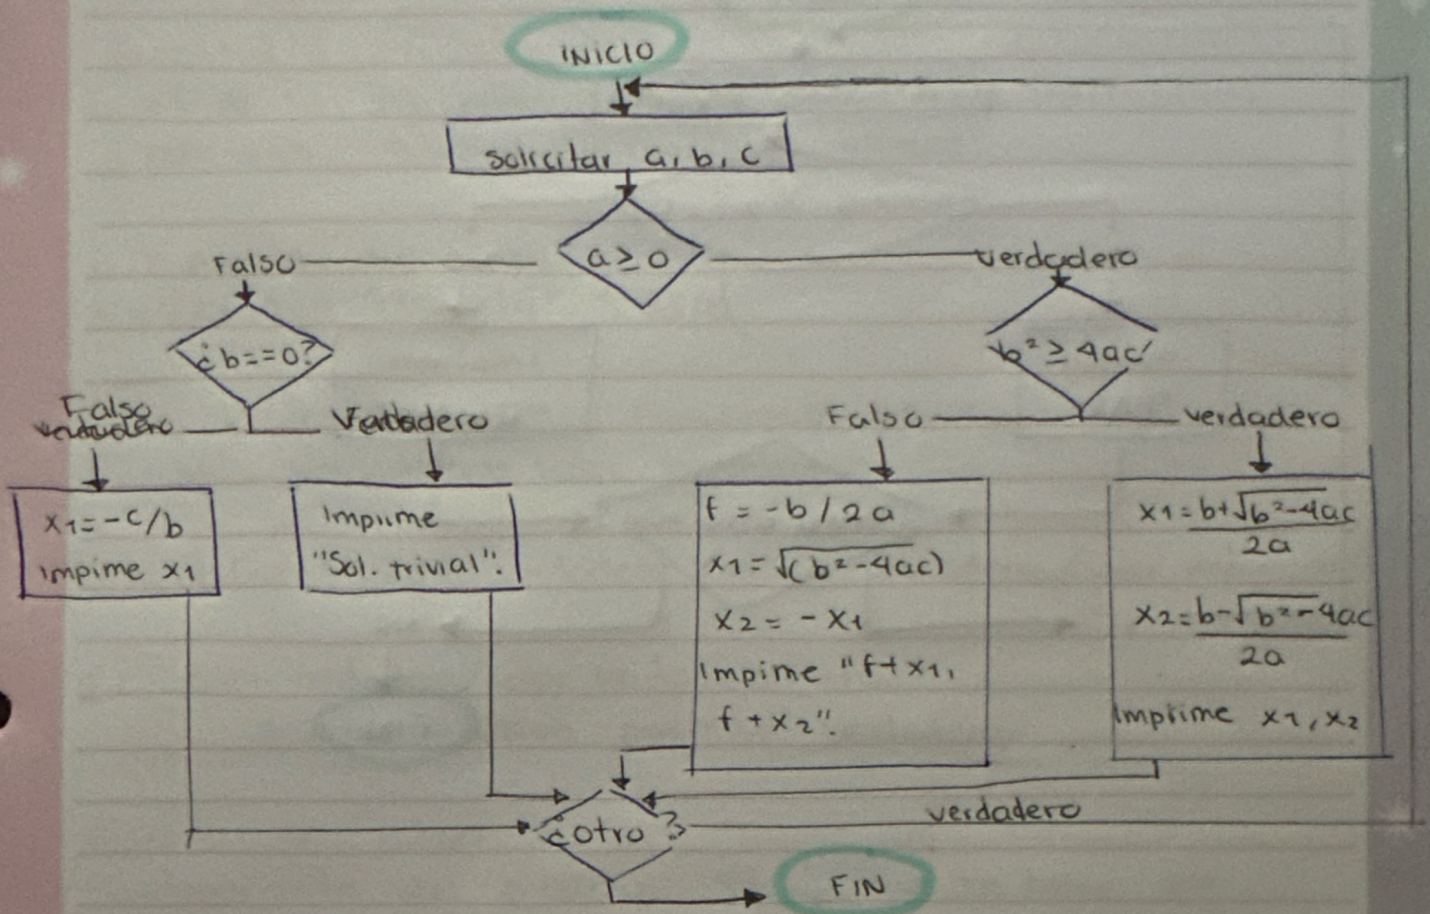 INICIO
solicitar a, b, c
a ≥ 0
Falso
verdadero
¿b==0?
b² ≥ 4ac
Falso
Verdadero
Falso
verdadero
x1=-c/b
impime x1
Imprime
"Sol. trivial".
f = -b / 2a
x1 = √(b²-4ac)
x2 = - x1
Impime "f+x1,
f + x2".
x1 = b+√b²-4ac
2a
x2 = b-√b²-4ac
2a
Imprime x1, x2
¿otro?
verdadero
FIN